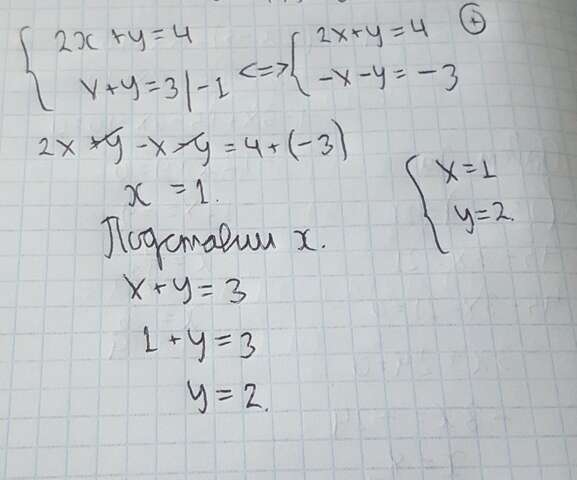 { 2x + y = 4
x + y = 3 | -1 <=> { 2x + y = 4 (+)
-x - y = -3
2x + y - x - y = 4 + (-3)
x = 1.
Подставим x.
x + y = 3
1 + y = 3
y = 2.
{ x = 1
y = 2.